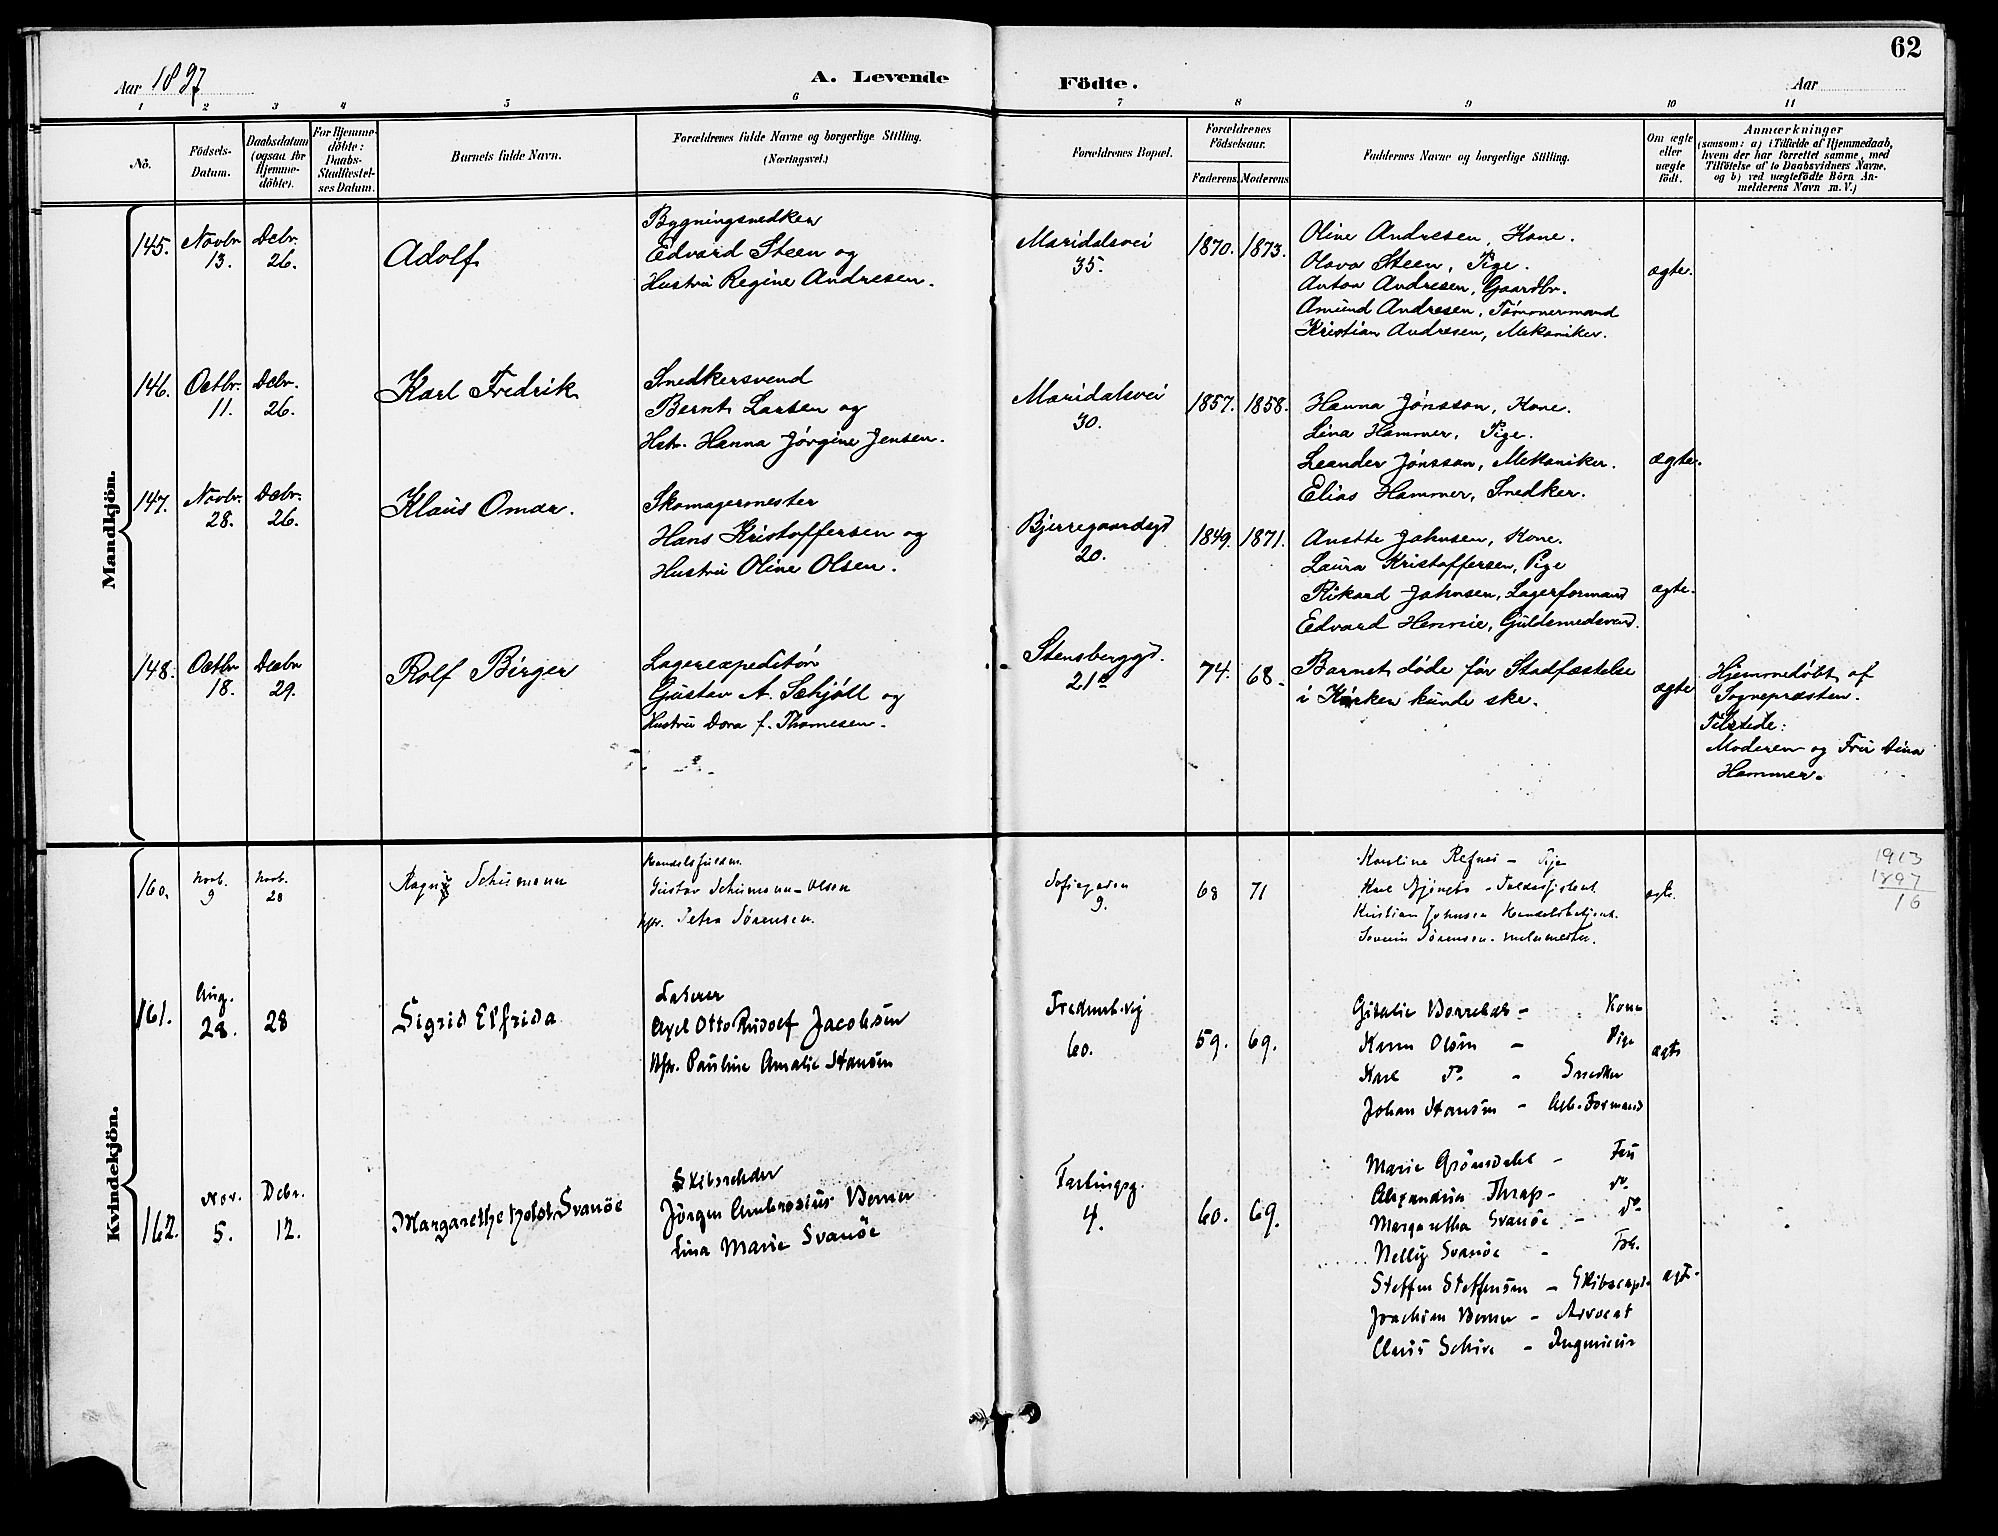 62
Aar 1897
A. Levende Födte.
Aar
1 2 3 4 5 6 7 8 9 10 11
Nö.
Födsels-Datum.
Daabsdatum (ogsaa for Hjemme-döbte).
For Hjemme-döbte: Daabs-Stadfæstel-ses Datum.
Barnets fulde Navn.
Forældrenes fulde Navne og borgerlige Stilling. (Næringsvei.)
Forældrenes Bopæl.
Forældrenes Födselsaar.
Faderens. Moderens.
Faddernes Navne og borgerlige Stilling.
Om ægte eller uægte födt.
Anmærkninger
(saasom: a) i Tilfælde af Hjemmedaab, hvem der har forrettet samme, med Tilföielse af to Daabsvidners Navne, og b) ved uægtefödte Börn An-melderens Navn m. V.)
Mandkjön.
145. Novbr. 13. Debr. 26. Adolf
Bygningsnedker
Edvard Steen og
Hustru Regine Andresen.
Maridalsvei 35.
1870. 1873.
Oline Andresen, Kone.
Olava Steen, Pige.
Anton Andresen, Gaardbr.
Amund Andresen, Tømmermand
Kristian Andresen, Mekaniker.
ægte.
146. Octbr. 11. Debr. 26. Karl Fredrik
Snedkersvend
Bernt Larsen og
Hstr. Hanna Jørgine Jensen.
Maridalsvei 30.
1857. 1858.
Hanna Jønsson, Kone.
Lina Hammer, Pige.
Leander Jønsson, Mekaniker.
Elias Hammer, Snedker.
ægte.
147. Novbr. 28. Debr. 26. Klaus Omar.
Skomagermester
Hans Kristoffersen og
Hustru Oline Olsen.
Bjerregaardsgd 20.
1849. 1871.
Anette Johnsen, Kone.
Laura Kristoffersen, Pige
Rikard Johnsen, Lagerformand
Edvard Hennie, Guldsmedsvend.
ægte.
148. Octbr 18. Decbr 29. Rolf Birger
Lagerexpeditør
Gustav A. Schjøll og
Hustru Dora f. Thomesen.
Stensberggd. 21c
74. 68.
Barnet døde før Stadfæstelse
i Kirken kunde ske.
ægte
Hjemmedøbt af
Sognepræsten.
Tilstede:
Moderen og Fru Lina
Hammer.
Kvindekjön.
160. Novb. 9 Novb. 28 Schumann
Gustav Schumann-Olsen
Hstr. Petra Sørensen.
Sofiegaden 9.
68 71
Karoline Refnes - Pige
Karl
Kristian Johnsen Handelsbetjent.
Severin Sørensen.
ægte.
1913
1897
16
161. Aug. 28. 28 Sigrid Elfrida
Axel Otto Rudolf Jacobsen
Hstr. Pauline Amalie Hansen
60.
59. 69.
Kone
Karen Olsen - Pige
Karl Do - Snedker
Johan Hansen - Arb. Formand
ægte
162. Nov. 5. Debr. 12. Margarethe Holst Svanöe
Skibsreder
Jörgen Ambrosius Berner
Lina Marie Svanöe
4.
60. 69.
Marie Grönsdahl - Fru
Alexandria Thrap - do.
Margaretha Svanöe - do
Nelly Svanöe - Frk.
Steffen Steffensen - Skibscapt.
Joachim Berner - Advocat
Claus Schive - Ingeniör
ægte.